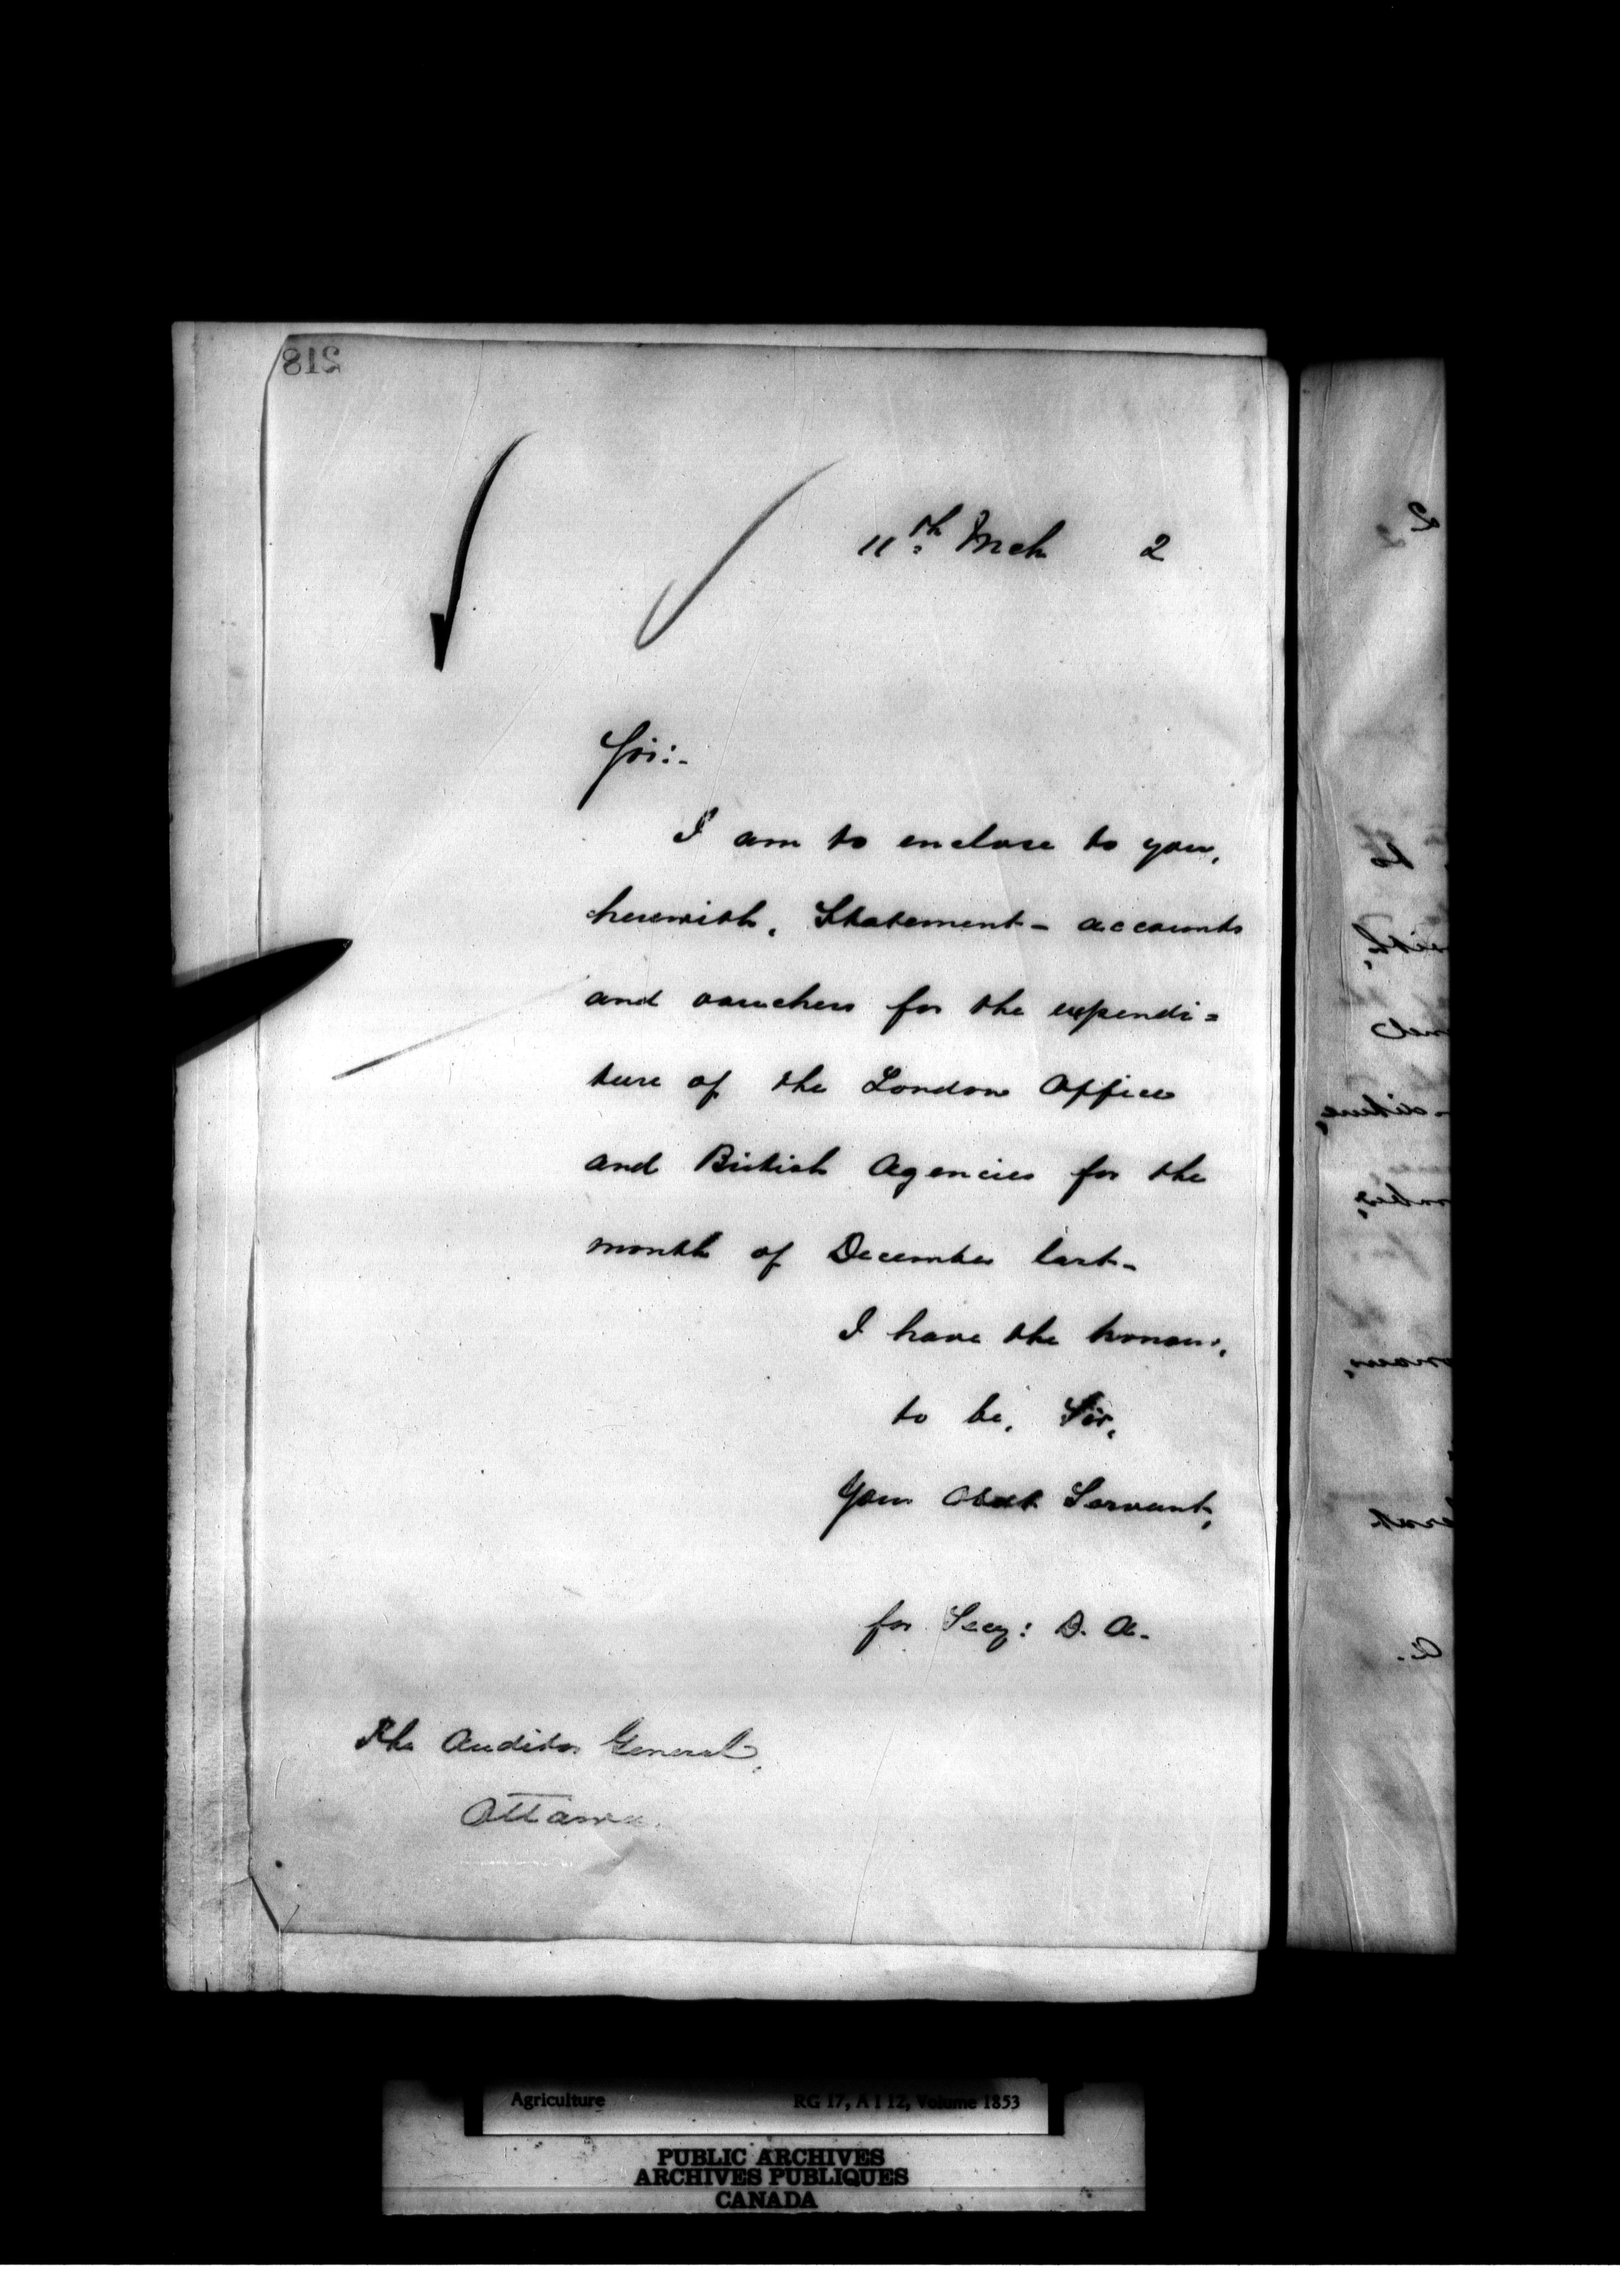 218
11th Mch 2
Sir:-
I am to enclose to you,
herewith, Statement - accounts
and vouchers for the expendi=
ture of the London Office
and British Agencies for the
month of December last-
I have the honour,
to be, Sir,
Your Obdt Servant,
for Secy: D. A.
The Auditor General,
Ottawa.
Agriculture RG 17, A I 12, Volume 1853
PUBLIC ARCHIVES
ARCHIVES PUBLIQUES
CANADA